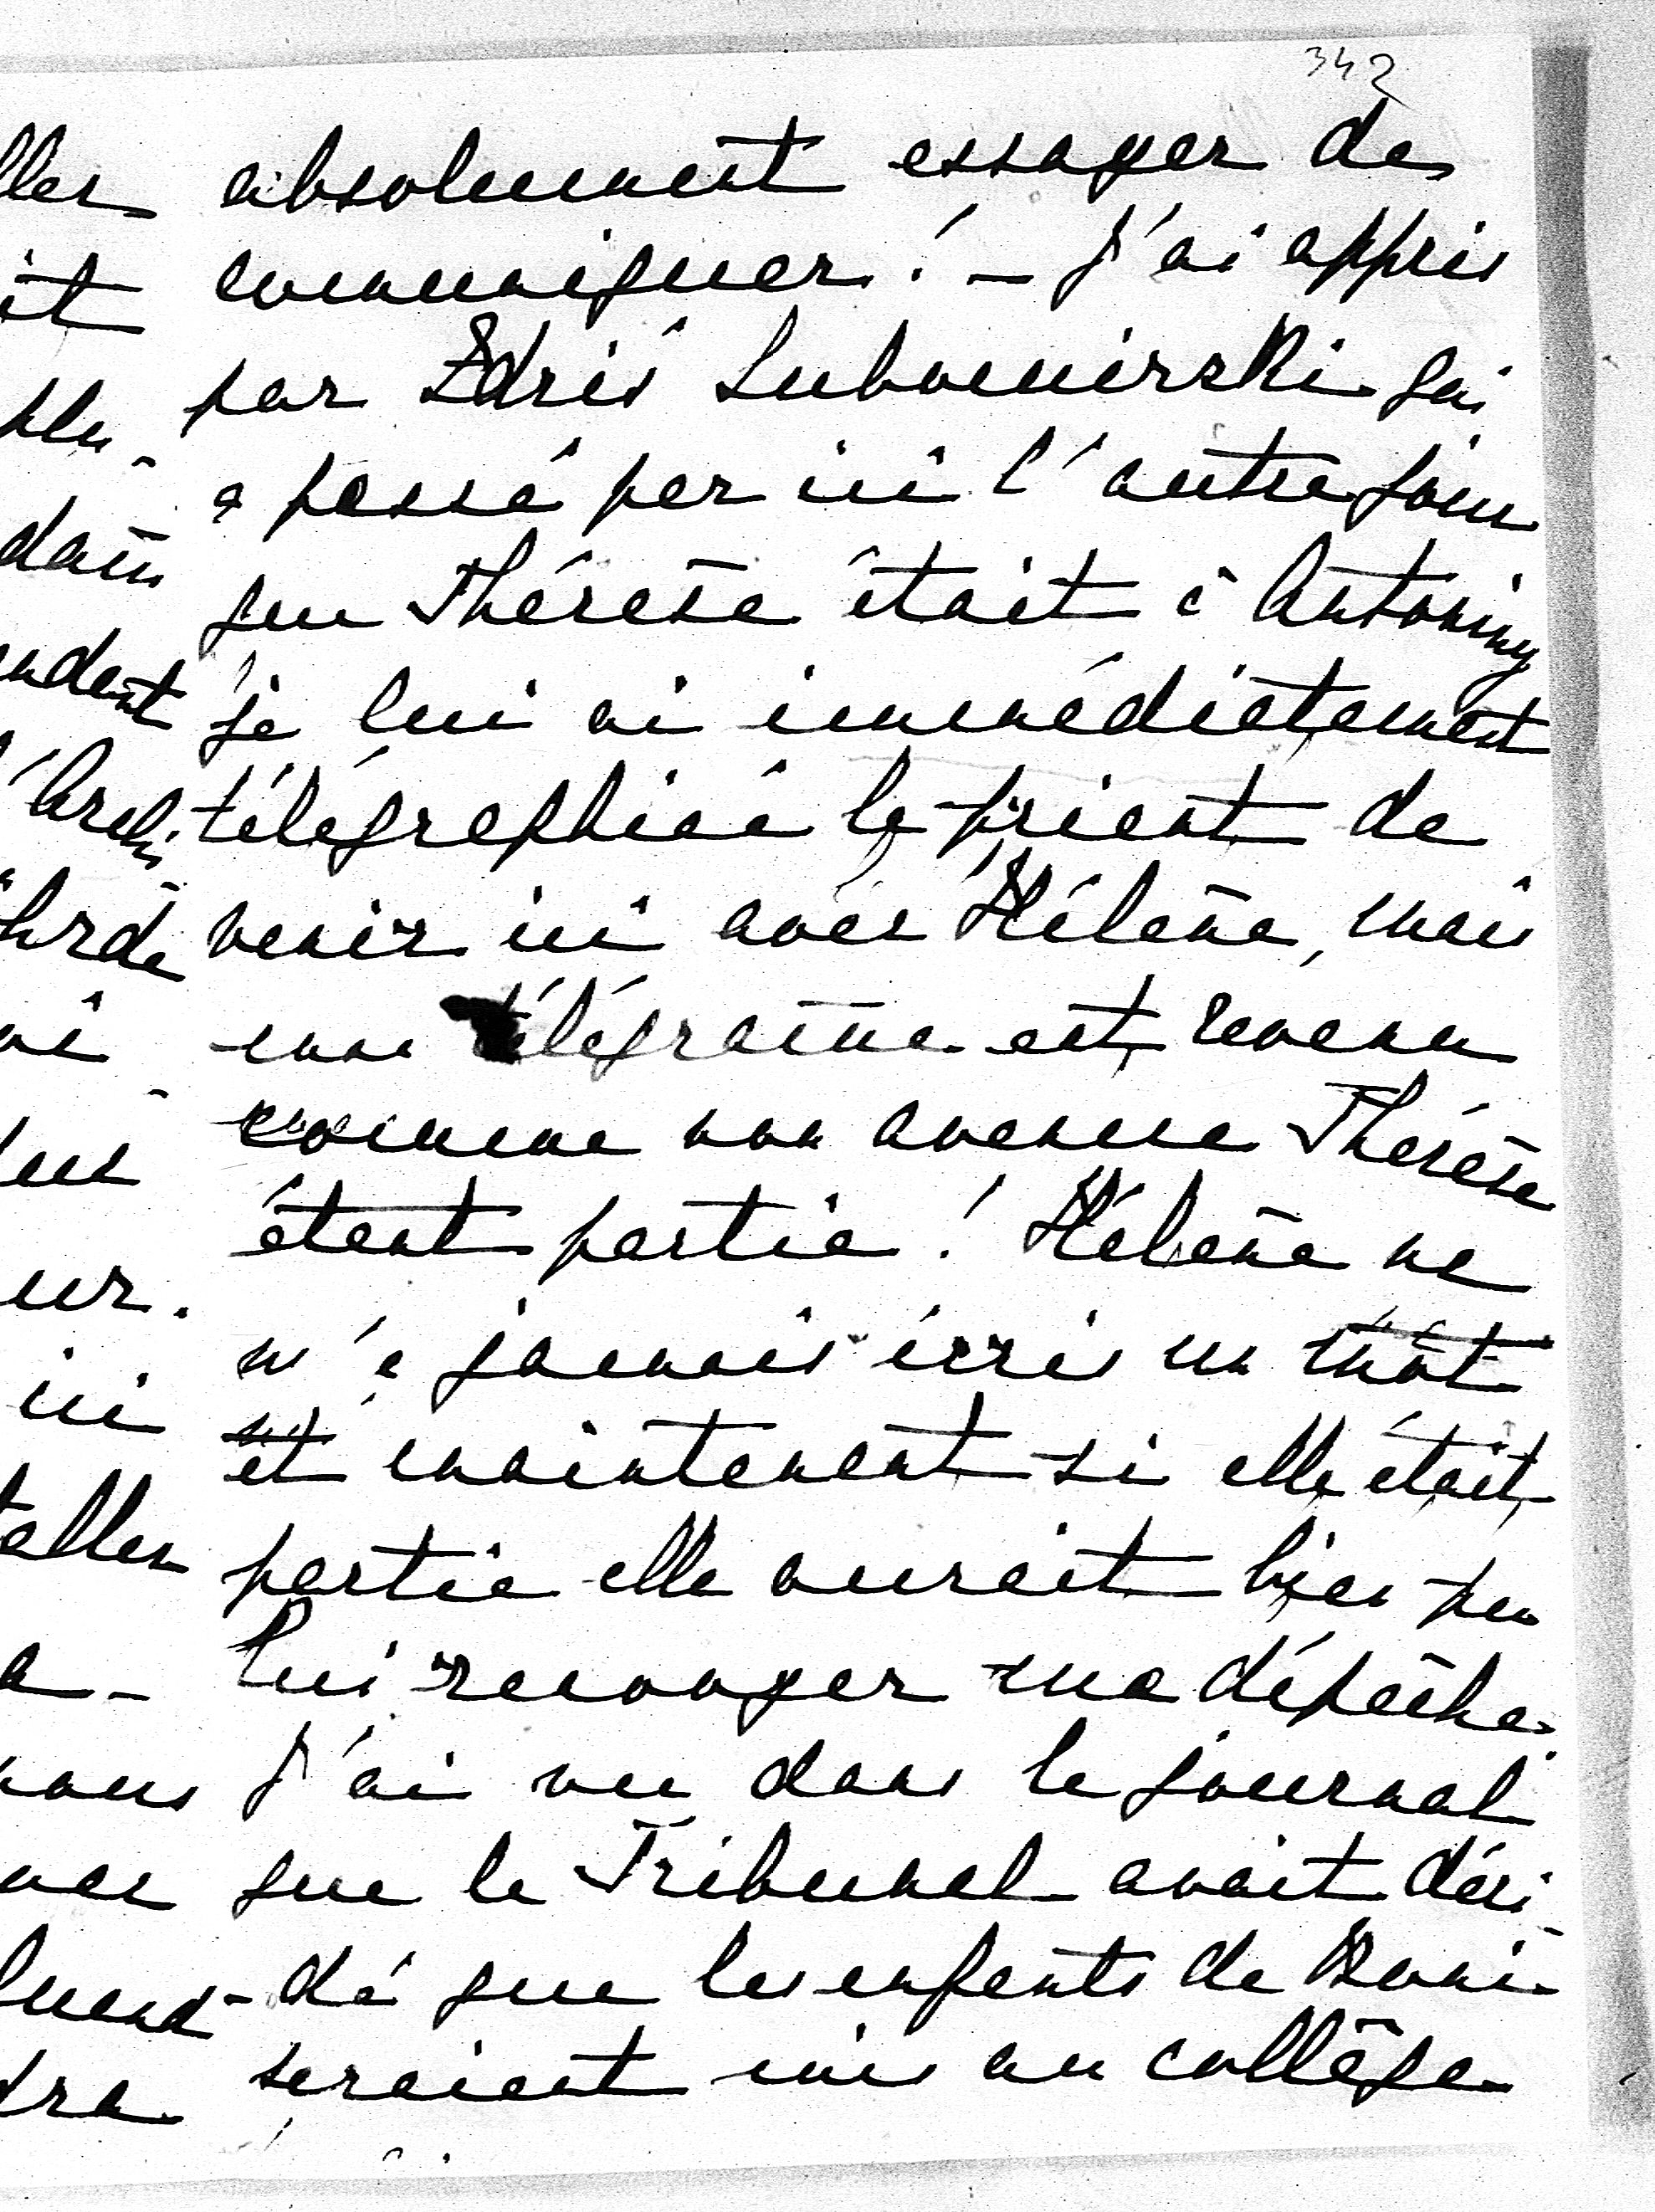 342
absolument essayer de
communiquer! – J'ai appris
par Zdziś Lubomirski qui
a passé par ici l'autre jour
que Thérèse était à Antoniny
je lui ai immédiatement
télégraphié la priant de
venir ici avec Hélène, mais
mon télégramme est revenu
comme non avenu Thérèse
étant partie! Hélène ne
m'a jamais écrit un mot
et maintenant si elle était
partie elle aurait bien pu
lui renvoyer ma dépêche.
J'ai vu dans le journal
que le Tribunal avait déci-
dé que les enfants de Boni
seraient mis au collège